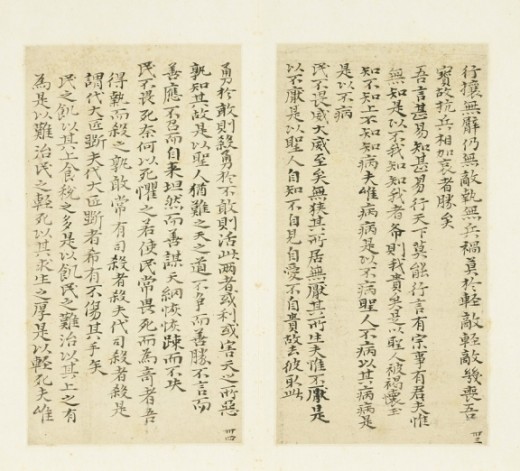 行攘無臂仍無敵執無兵禍莫於輕敵輕敵幾喪吾
寳故抗兵相加哀者勝矣
吾言甚易知甚易行天下莫能行言有宗事有君夫惟
無知是以不我知知我者希則我貴矣是以聖人被褐懷玉
知不知上不知知病夫唯病病是以不病聖人不病以其病病是
是以不病
民不畏威大威至矣無狹其所居無厭其所生夫惟不厭是
以不厭是以聖人自知不自見自愛不自貴故去彼取此
卌三
勇於敢則殺勇於不敢則活此兩者或利或害天之所惡
孰知其故是以聖人猶難之天之道不爭而善勝不言而
善應不召而自來坦然而善謀天網恢恢踈而不失
民不畏死奈何以死懼之若使民常畏死而為奇者吾
得執而殺之孰敢常有司殺者殺夫代司殺者殺是
謂代大匠斲夫代大匠斲者希有不傷其手矣
民之飢以其上食稅之多是以飢民之難治以其上之有
為是以難治民之輕死以其求生之厚是以輕死夫唯
卌四